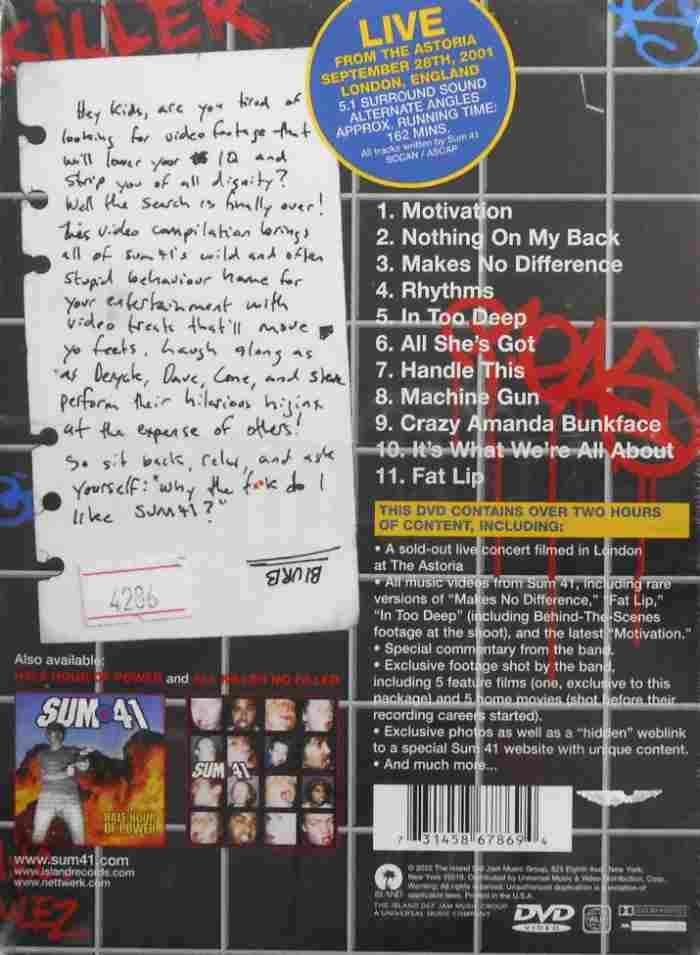 KILLER
LIVE
FROM THE ASTORIA
SEPTEMBER 28TH, 2001
LONDON, ENGLAND
5.1 SURROUND SOUND
ALTERNATE ANGLES
APPROX. RUNNING TIME:
162 MINS.
All tracks written by Sum 41
SOCAN / ASCAP
Hey Kids, are you tired of
looking for video footage that
will lower your IQ and
strip you of all dignity?
Well the search is finally over!
This video compilation brings
all of sum 41's wild and often
stupid behaviour home for
your entertainment with
video treats that'll move
yo feets. Laugh along as
as Deryck, Dave, Cone, and Steve
perform their hilarious hijinx
at the expense of others!
So sit back, relax, and ask
yourself: "Why the f**k do I
like SUM 41?"
BLURB
4286
1. Motivation
2. Nothing On My Back
3. Makes No Difference
4. Rhythms
5. In Too Deep
6. All She's Got
7. Handle This
8. Machine Gun
9. Crazy Amanda Bunkface
10. It's What We're All About
11. Fat Lip
THIS DVD CONTAINS OVER TWO HOURS
OF CONTENT, INCLUDING:
• A sold-out live concert filmed in London
at The Astoria
• All music videos from Sum 41, including rare
versions of "Makes No Difference," "Fat Lip,"
"In Too Deep" (including Behind-The-Scenes
footage at the shoot), and the latest "Motivation."
• Special commentary from the band.
• Exclusive footage shot by the band,
including 5 feature films (one, exclusive to this
package) and 5 home movies (shot before their
recording careers started).
• Exclusive photos as well as a "hidden" weblink
to a special Sum 41 website with unique content.
• And much more...
Also available:
HALF HOUR OF POWER and ALL KILLER NO FILLER
SUM 41
HALF HOUR
OF POWER
SUM 41
www.sum41.com
www.islandrecords.com
www.nettwerk.com
7 31458 67869 4
ISLAND
© 2002 The Island Def Jam Music Group, 825 Eighth Ave, New York,
New York 10019. Distributed by Universal Music & Video Distribution, Corp.
Warning: All rights reserved. Unauthorized duplication is a violation of
applicable laws. Printed in the U.S.A.
THE ISLAND DEF JAM MUSIC GROUP
A UNIVERSAL MUSIC COMPANY
DVD
VIDEO
ALL